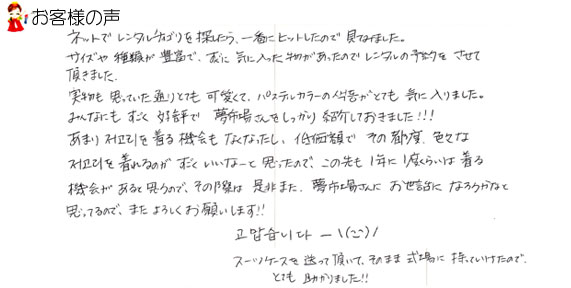 お客様の声
ネットでレンタルチョゴリを探したら、一番にヒットしたので見てみました。
サイズや種類が豊富で、すぐに気に入った物があったのでレンタルの予約をさせて
頂きました。
実物も思っていた通りとても可愛くて、パステルカラーの色合がとても気に入りました。
みんなにもすごく好評で夢市場さんをしっかり紹介しておきました!!!
あまり저고리を着る機会もなくなったし、低価額でその都度、色々な
저고리を着れるのがすごくいいなーと思ったので、この先も1年に1度くらいは着る
機会があると思うので、その際は是非また、夢市場さんにお世話になろうかなと
思ってるので、またよろしくお願いします!!
고맙습니다 ー \(^^)/
スーツケースを送って頂いて、そのまま式場に持っていけたので、
とても助かりました!!